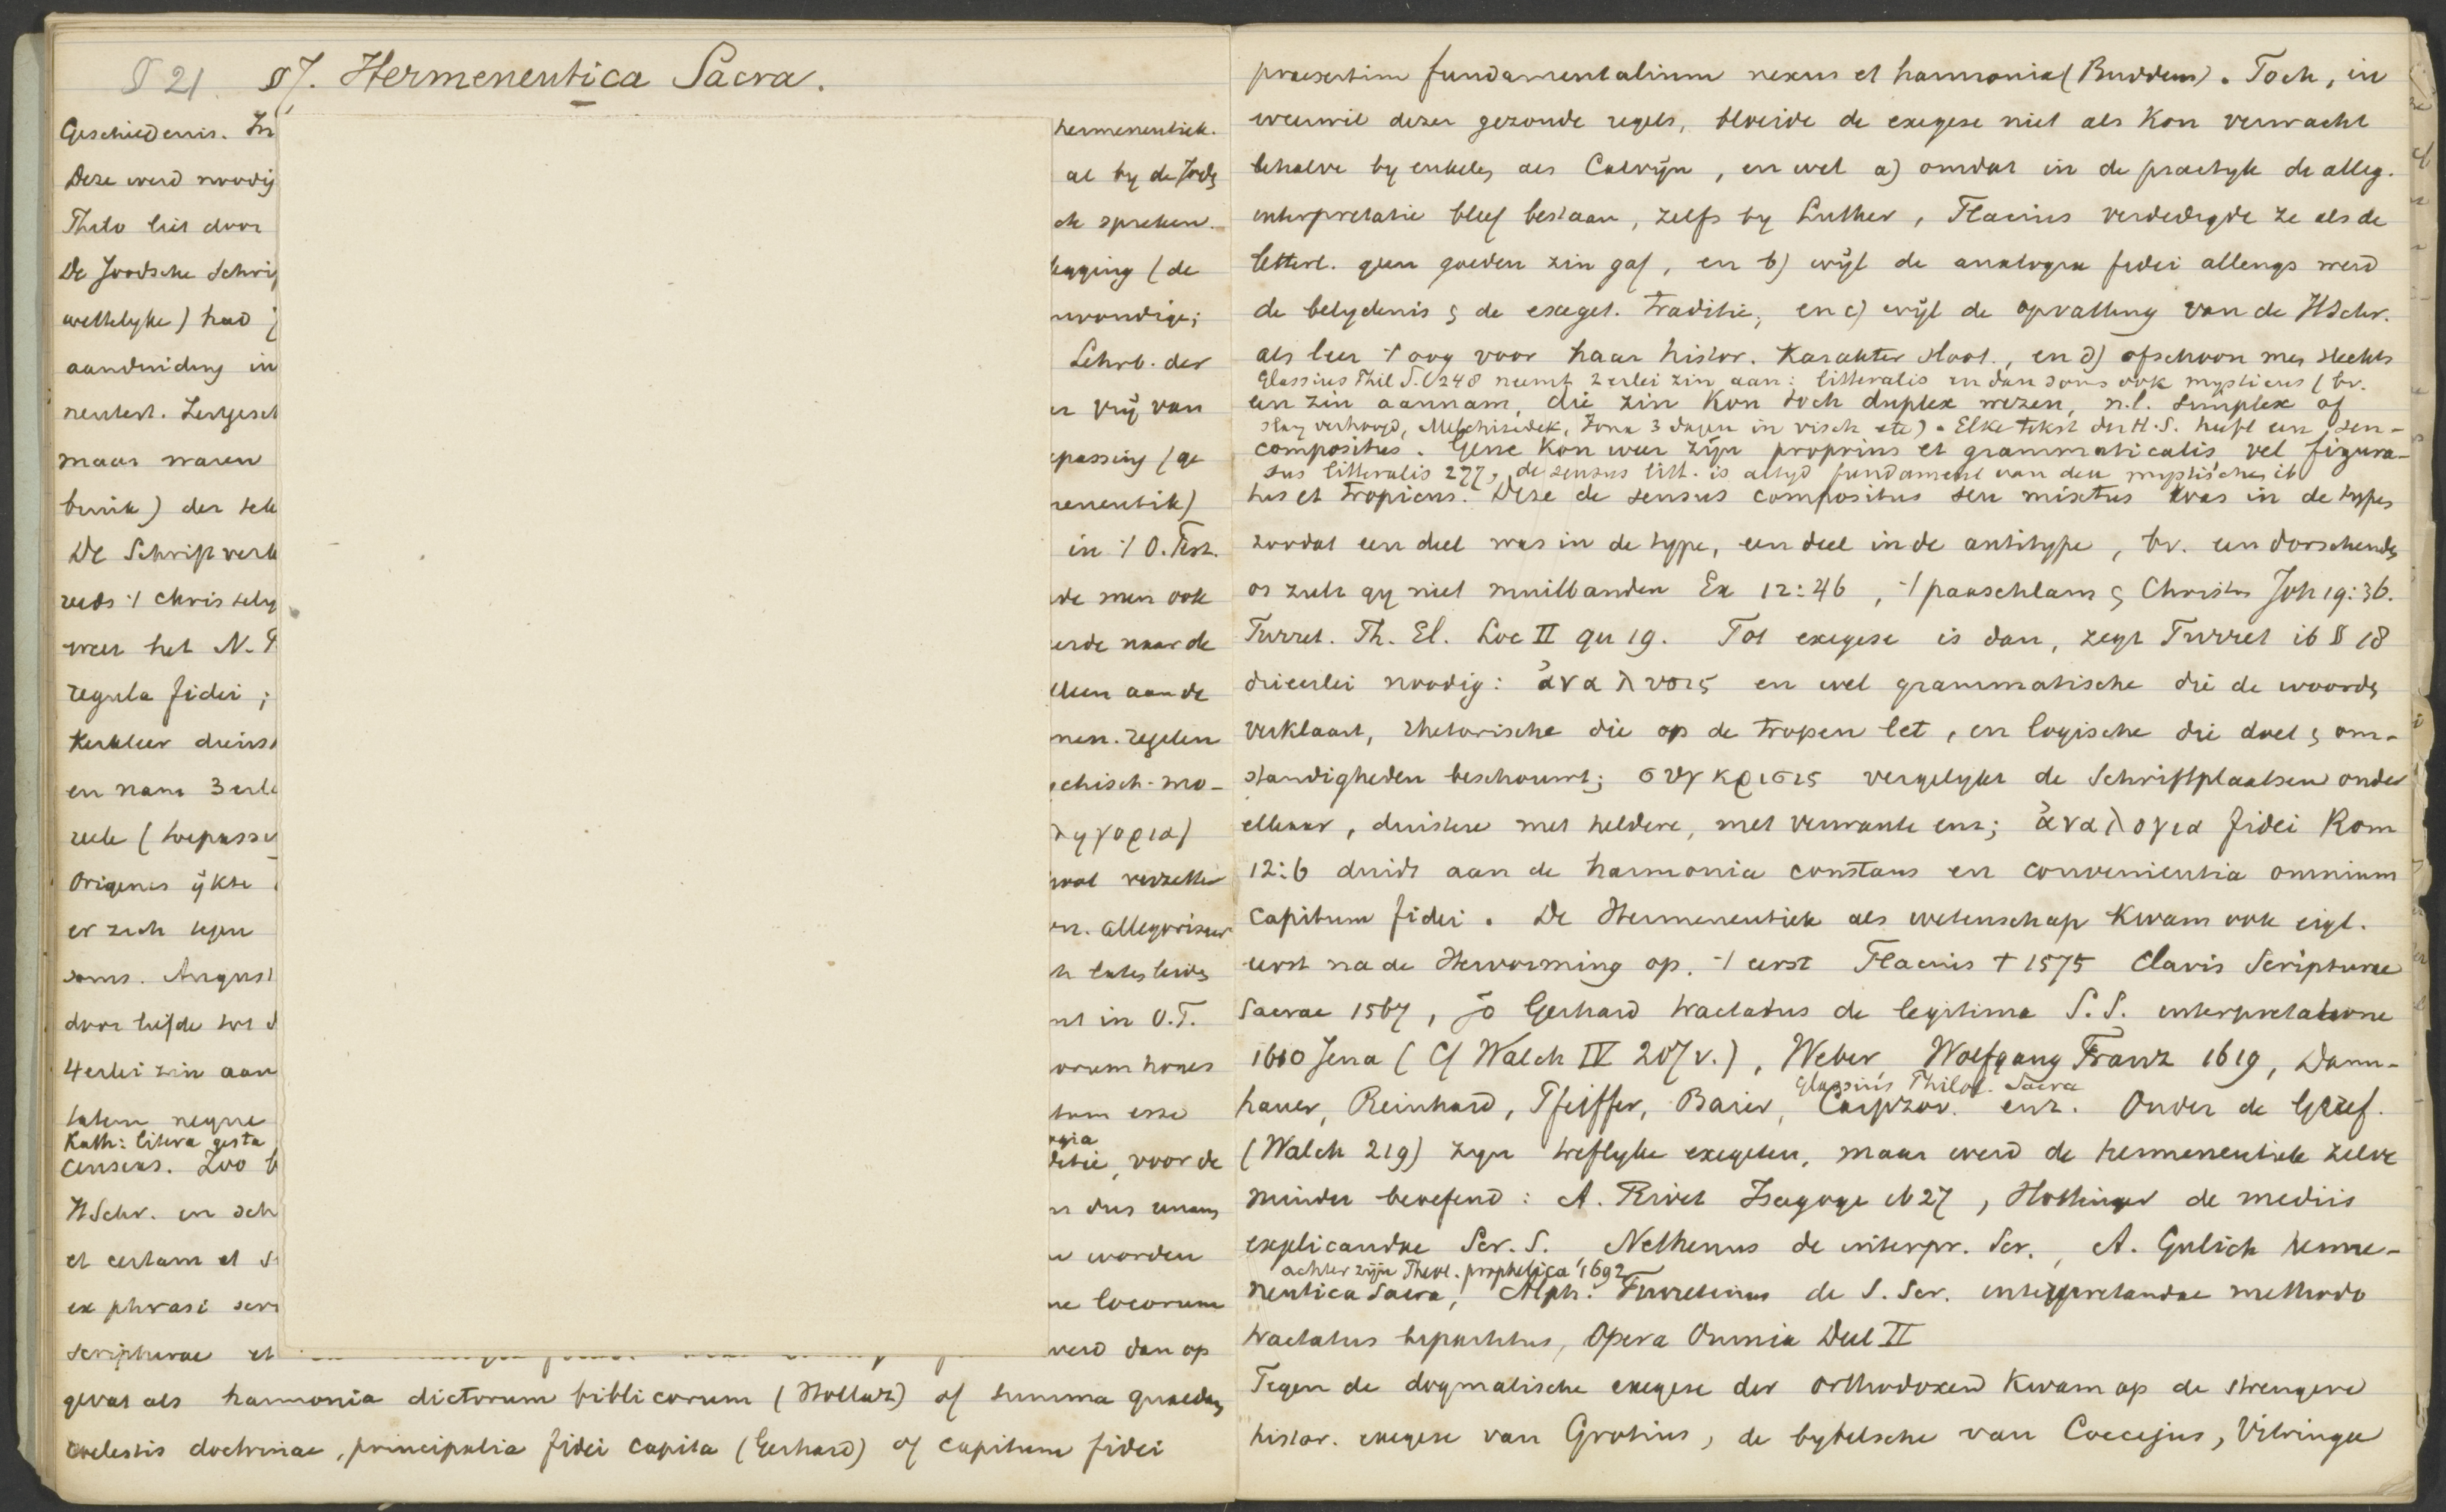 § 21 §7. Hermeneutica Sacra.
Geschiedenis. In hermeneutiek.
Deze werd noodig al by de Jodn
Philo liet door ok spreken.
De Joodsche Schri legging (de
wettelyke) had nvoudige;
aanduiding in Lehrb. der
neutest. Zeitgesch er vrij van
maar waren epassing (ge
bruik) der tek meneutik)
De Schriftverk in 't O. Test.
reeds 't christely de men ook
weer het N. T eerde naar de
regula fidei; lleen aan de
Kerkleer dienst men. regelen
en nam 3 erle chisch-mo-
reele (toepasse λ η γ ο ρ ι α)
Origenes ijkte wel verzette
er zich tegen en. allegoriseer
soms. August h later beide
door liefde tot d nt in O.T.
4erlei zin aan orum hones
tatem neque tum esse
Kath: litera gesta ogia
censens. Zoo b ditie, voor de
H Schr. en sch n dus unam
et certam et s n worden
ex phrasi scri ne locorum
scripturae et werd dan op
gevat als harmonia dictorum biblicorum (Hollaz) of summa quaedam
coelestis doctrinae, principalia fidei capita (Gerhard) of capitum fidei
praesertim fundamentalium nexus et harmonia (Buddeus). Toch, in
weerwil dezer gezonde regels, bloeide de exegese niet als Kon verwacht
behalve by enkele, als Calvijn, en wel a) omdat in de practyk de alleg.
interpretatie bleef bestaan, zelfs by Luther, Flacius verdedigde ze als de
letterl. geen goeden zin gaf, en b) wijl de analogia fidei allengs werd
de belydenis & de exeget. traditie, en c) wijl de opvatting van de HSchr.
als leer 't oog voor haar histor. Karakter sloot, en d) ofschoon men slechts
Glassius Phil S. 248 neemt 2erlei zin aan: litteralis en dan soms ook mysticus (bv.
een zin aannam, die zin Kon toch duplex wezen, n.l. simplex of
slang verhoogd, Melchizedek, Jona 3 dagen in visch etc). Elke tekst der H.S. heeft een sen-
compositus. Gene kon weer zijn proprius et grammaticalis vel figura-
sus litteralis 277, de sensus litt. is altyd fundament van den mystischen ib
tus et tropicus. Deze de sensus compositus seu mixtus was in de types
zoodat een deel was in de type, een deel in de antitype, bv. een dorschenden
os zult gy niet muilbanden Ex 12:46, 't paaschlam & Christus Joh 19:36.
Turret. Th. El. Loc II qu 19. Tot exegese is dan, zegt Turret ib § 18
drieerlei noodig: ἀναλυσις en wel grammatische die de woorden
verklaart, rhetorische die op de tropen let, en logische die doel & om-
standigheden beschouwt; συγκρισις vergelykt de Schriftplaatsen onder
elkaar, duistere met heldere, met verwante enz; ἀναλογια fidei Rom
12:6 duidt aan de harmonia constans en convenientia omnium
capitum fidei. De Hermeneutiek als wetenschap Kwam ook eigl.
eerst na de Hervorming op. 't eerst Flacius † 1575 Clavis Scripturae
Sacrae 1567, Jo Gerhard tractatus de legitima S. S. interpretatione
1610 Jena (Cf Walch IV 207 v.), Weber, Wolfgang Franz 1619, Dann-
Glassius Philol. Sacra
hauer, Reinhard, Pfeiffer, Baier, Carpzov. enz. Onder de Geref.
(Walch 219) zyn treflyke exegeten, maar werd de hermeneutiek zelve
minder beoefend: A. Rivet Isagoge 1627, Hottinger de mediis
explicandae Scr. S. Nethenus de interpr. Scr., A. Gulich herme-
achter zijn Theol. prophetica 1692
neutica Sacra, Alph. Turretinus de S. Scr. interpretandae methodo
tractatus bipartitus, Opera Omnia Deel II
Tegen de dogmatische exegese der orthodoxen Kwam op de strengere
histor. exegese van Grotius, de bybelsche van Coccejus, Vitringa